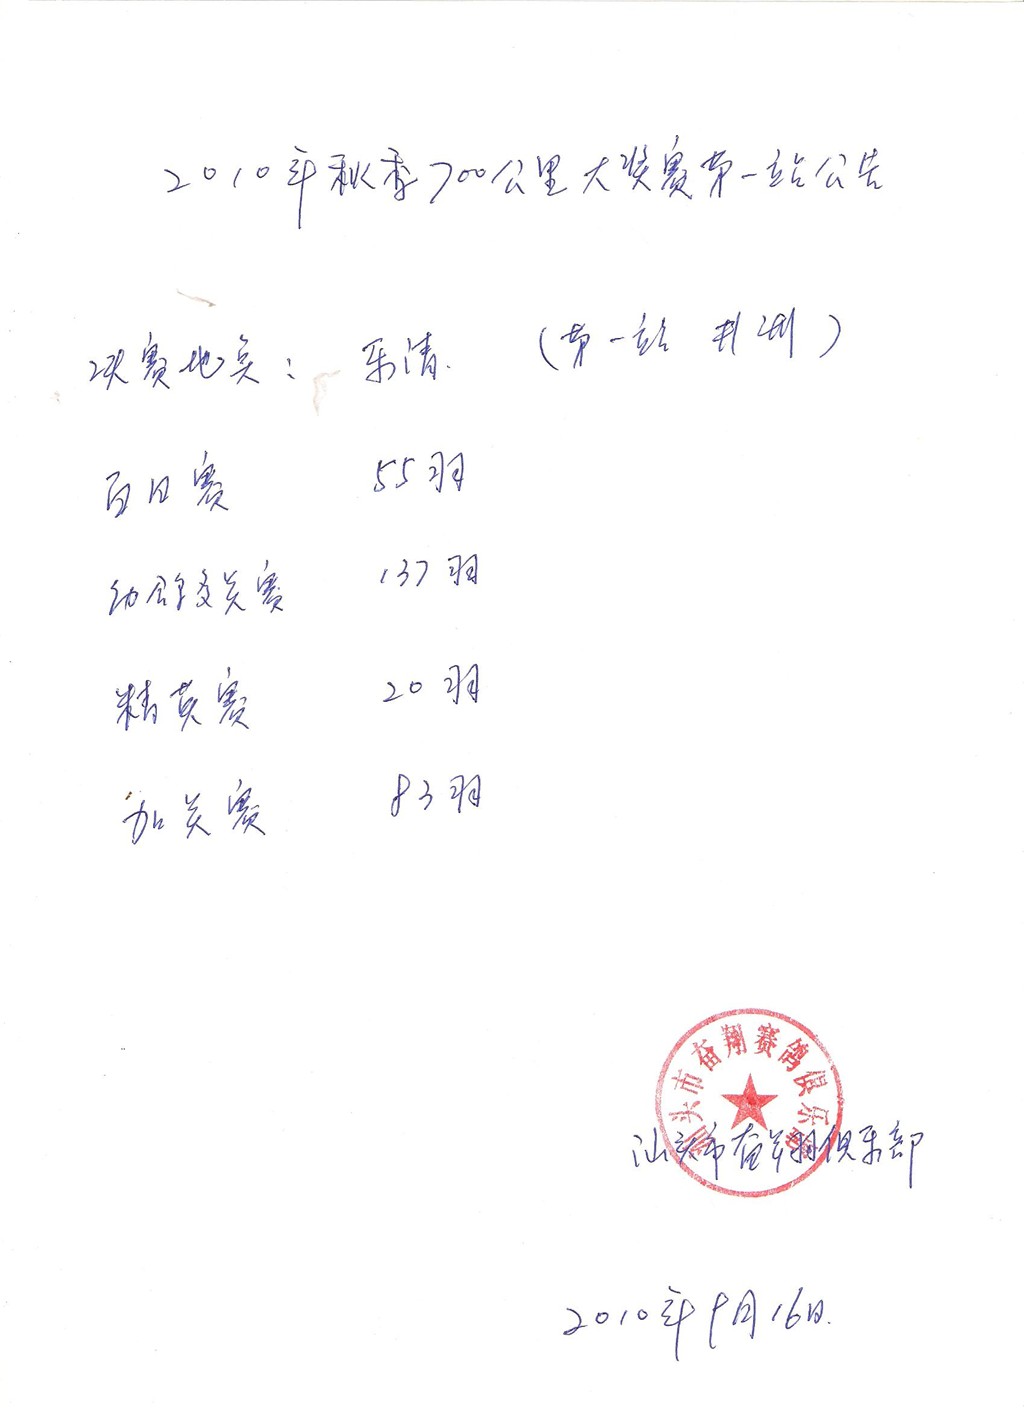 2010年秋季700公里大奖赛第一站公告
决赛地点: 乐清. (第一站 井洲)
百日赛 55羽
幼鸽交关赛 137羽
精英赛 20羽
加关赛 83羽
汕头市奋翔赛鸽俱乐部
汕头市奋翔俱乐部
2010年9月16日.